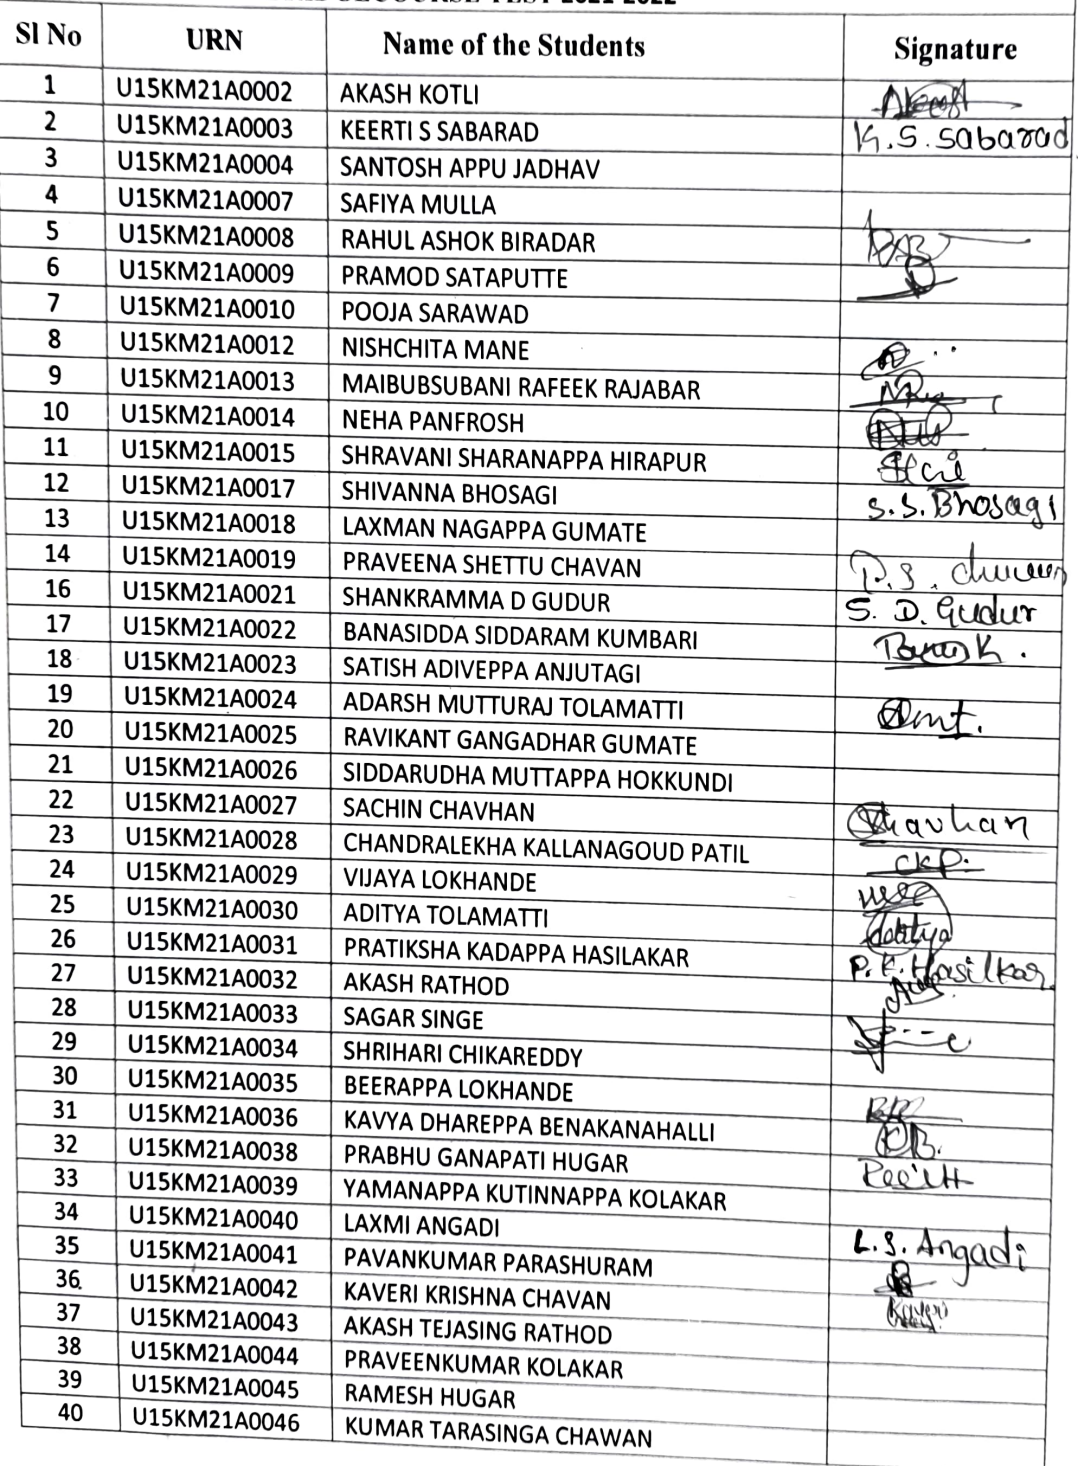 TEST 2021-2022
Sl No URN Name of the Students Signature
1 U15KM21A0002 AKASH KOTLI
2 U15KM21A0003 KEERTI S SABARAD K.S.Sabarad
3 U15KM21A0004 SANTOSH APPU JADHAV
4 U15KM21A0007 SAFIYA MULLA
5 U15KM21A0008 RAHUL ASHOK BIRADAR
6 U15KM21A0009 PRAMOD SATAPUTTE
7 U15KM21A0010 POOJA SARAWAD
8 U15KM21A0012 NISHCHITA MANE
9 U15KM21A0013 MAIBUBSUBANI RAFEEK RAJABAR
10 U15KM21A0014 NEHA PANFROSH
11 U15KM21A0015 SHRAVANI SHARANAPPA HIRAPUR
12 U15KM21A0017 SHIVANNA BHOSAGI S.S.Bhosagi
13 U15KM21A0018 LAXMAN NAGAPPA GUMATE
14 U15KM21A0019 PRAVEENA SHETTU CHAVAN
16 U15KM21A0021 SHANKRAMMA D GUDUR S. D. Gudur
17 U15KM21A0022 BANASIDDA SIDDARAM KUMBARI
18 U15KM21A0023 SATISH ADIVEPPA ANJUTAGI
19 U15KM21A0024 ADARSH MUTTURAJ TOLAMATTI
20 U15KM21A0025 RAVIKANT GANGADHAR GUMATE
21 U15KM21A0026 SIDDARUDHA MUTTAPPA HOKKUNDI
22 U15KM21A0027 SACHIN CHAVHAN Chavhan
23 U15KM21A0028 CHANDRALEKHA KALLANAGOUD PATIL CKP.
24 U15KM21A0029 VIJAYA LOKHANDE
25 U15KM21A0030 ADITYA TOLAMATTI Aditya
26 U15KM21A0031 PRATIKSHA KADAPPA HASILAKAR P.K.Hasilkar
27 U15KM21A0032 AKASH RATHOD
28 U15KM21A0033 SAGAR SINGE
29 U15KM21A0034 SHRIHARI CHIKAREDDY
30 U15KM21A0035 BEERAPPA LOKHANDE
31 U15KM21A0036 KAVYA DHAREPPA BENAKANAHALLI
32 U15KM21A0038 PRABHU GANAPATI HUGAR
33 U15KM21A0039 YAMANAPPA KUTINNAPPA KOLAKAR
34 U15KM21A0040 LAXMI ANGADI L.S. Angadi
35 U15KM21A0041 PAVANKUMAR PARASHURAM
36 U15KM21A0042 KAVERI KRISHNA CHAVAN Kaveri
37 U15KM21A0043 AKASH TEJASING RATHOD
38 U15KM21A0044 PRAVEENKUMAR KOLAKAR
39 U15KM21A0045 RAMESH HUGAR
40 U15KM21A0046 KUMAR TARASINGA CHAWAN